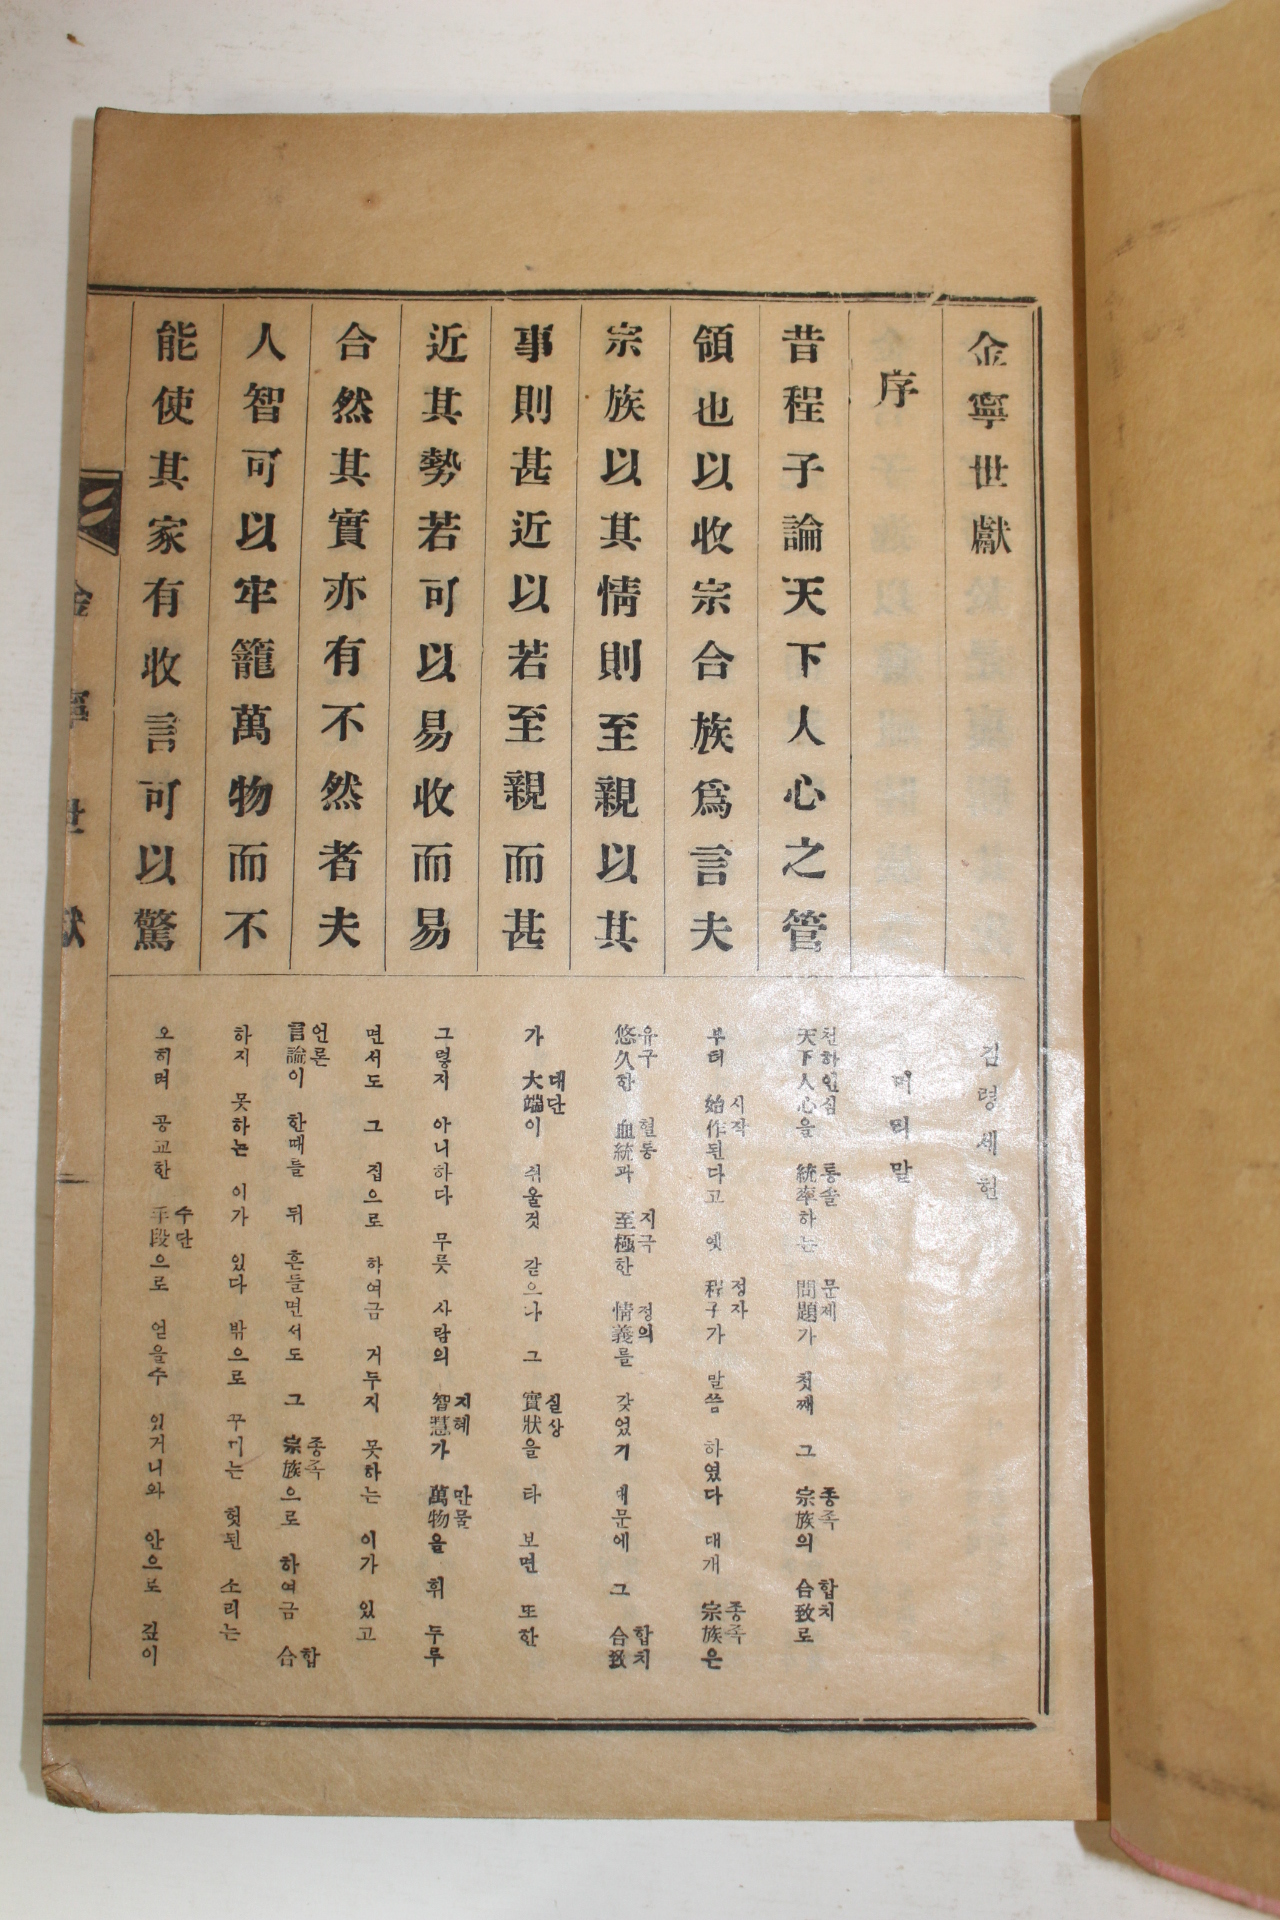 金寧世獻
序
昔程子論天下人心之管
領也以收宗合族爲言夫
宗族以其情則至親以其
事則甚近以若至親而甚
近其勢若可以易收而易
合然其實亦有不然者夫
人智可以牢籠萬物而不
能使其家有收言可以驚
김령세헌
머리말
天下人心을 統率하는 問題가 첫째 그 宗族의 合致로
천하인심 통솔 문제 종족 합치
부터 始作된다고 옛 程子가 말씀 하였다 대개 宗族은
시작 정자 종족
悠久한 血統과 至極한 情義를 갖었기 때문에 그 合致
유구 혈통 지극 정의 합치
가 大端이 쉬울것 같으나 그 實狀을 타 보면 또한
대단 실상
그렇지 아니하다 무릇 사람의 智慧가 萬物을 휘 두루
지혜 만물
면서도 그 집으로 하여금 거두지 못하는 이가 있고
言論이 한때를 뒤 흔들면서도 그 宗族으로 하여금 合
언론 종족 합
하지 못하는 이가 있다 밖으로 꾸미는 헛된 소리는
오히려 공교한 手段으로 얻을수 있거니와 안으로 깊이
수단
金寧世獻
一